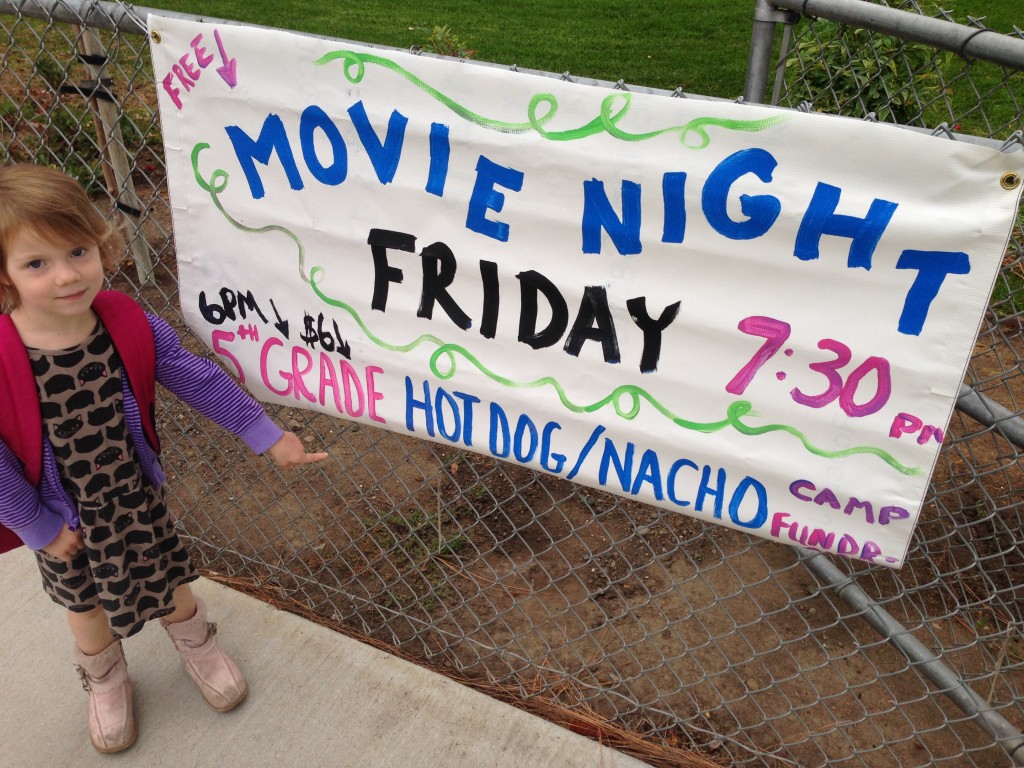 FREE↓
MOVIE NIGHT
FRIDAY 7:30 PM
6PM↓ $6↓
5TH GRADE HOT DOG/NACHO CAMP FUNDR.